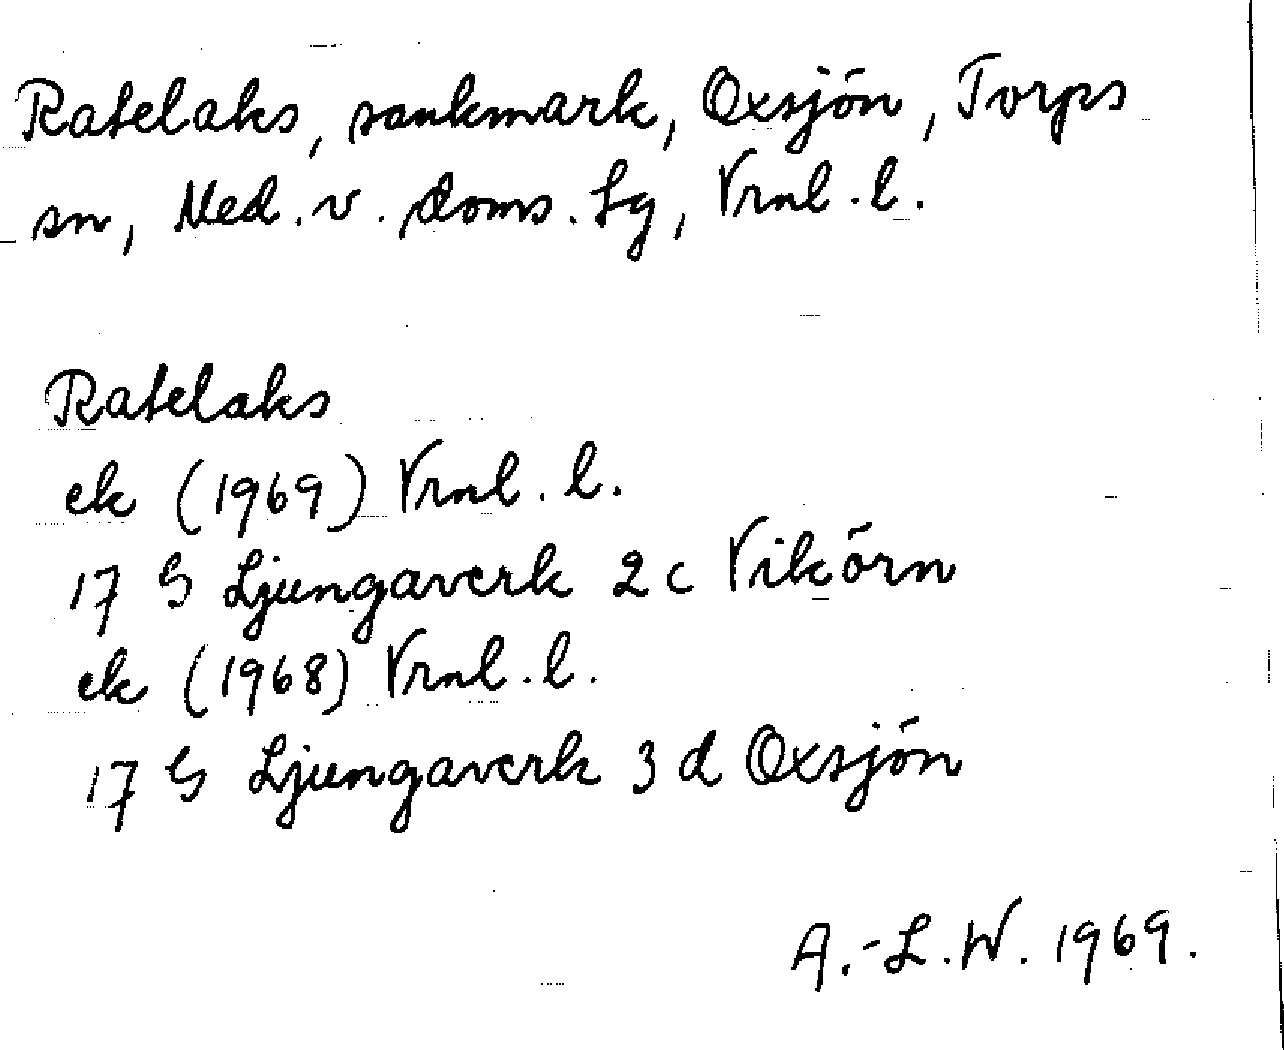 Ratelaks, sankmark, Oxsjön, Torps
sn, Med. v. doms. Lg, Vrnl. l.
Ratelaks
ek (1969) Vrnl. l.
17 G Ljungaverk 2 c Vikörn
ek (1968) Vrnl. l.
17 G Ljungaverk 3 d Oxsjön
A.-L.W. 1969.